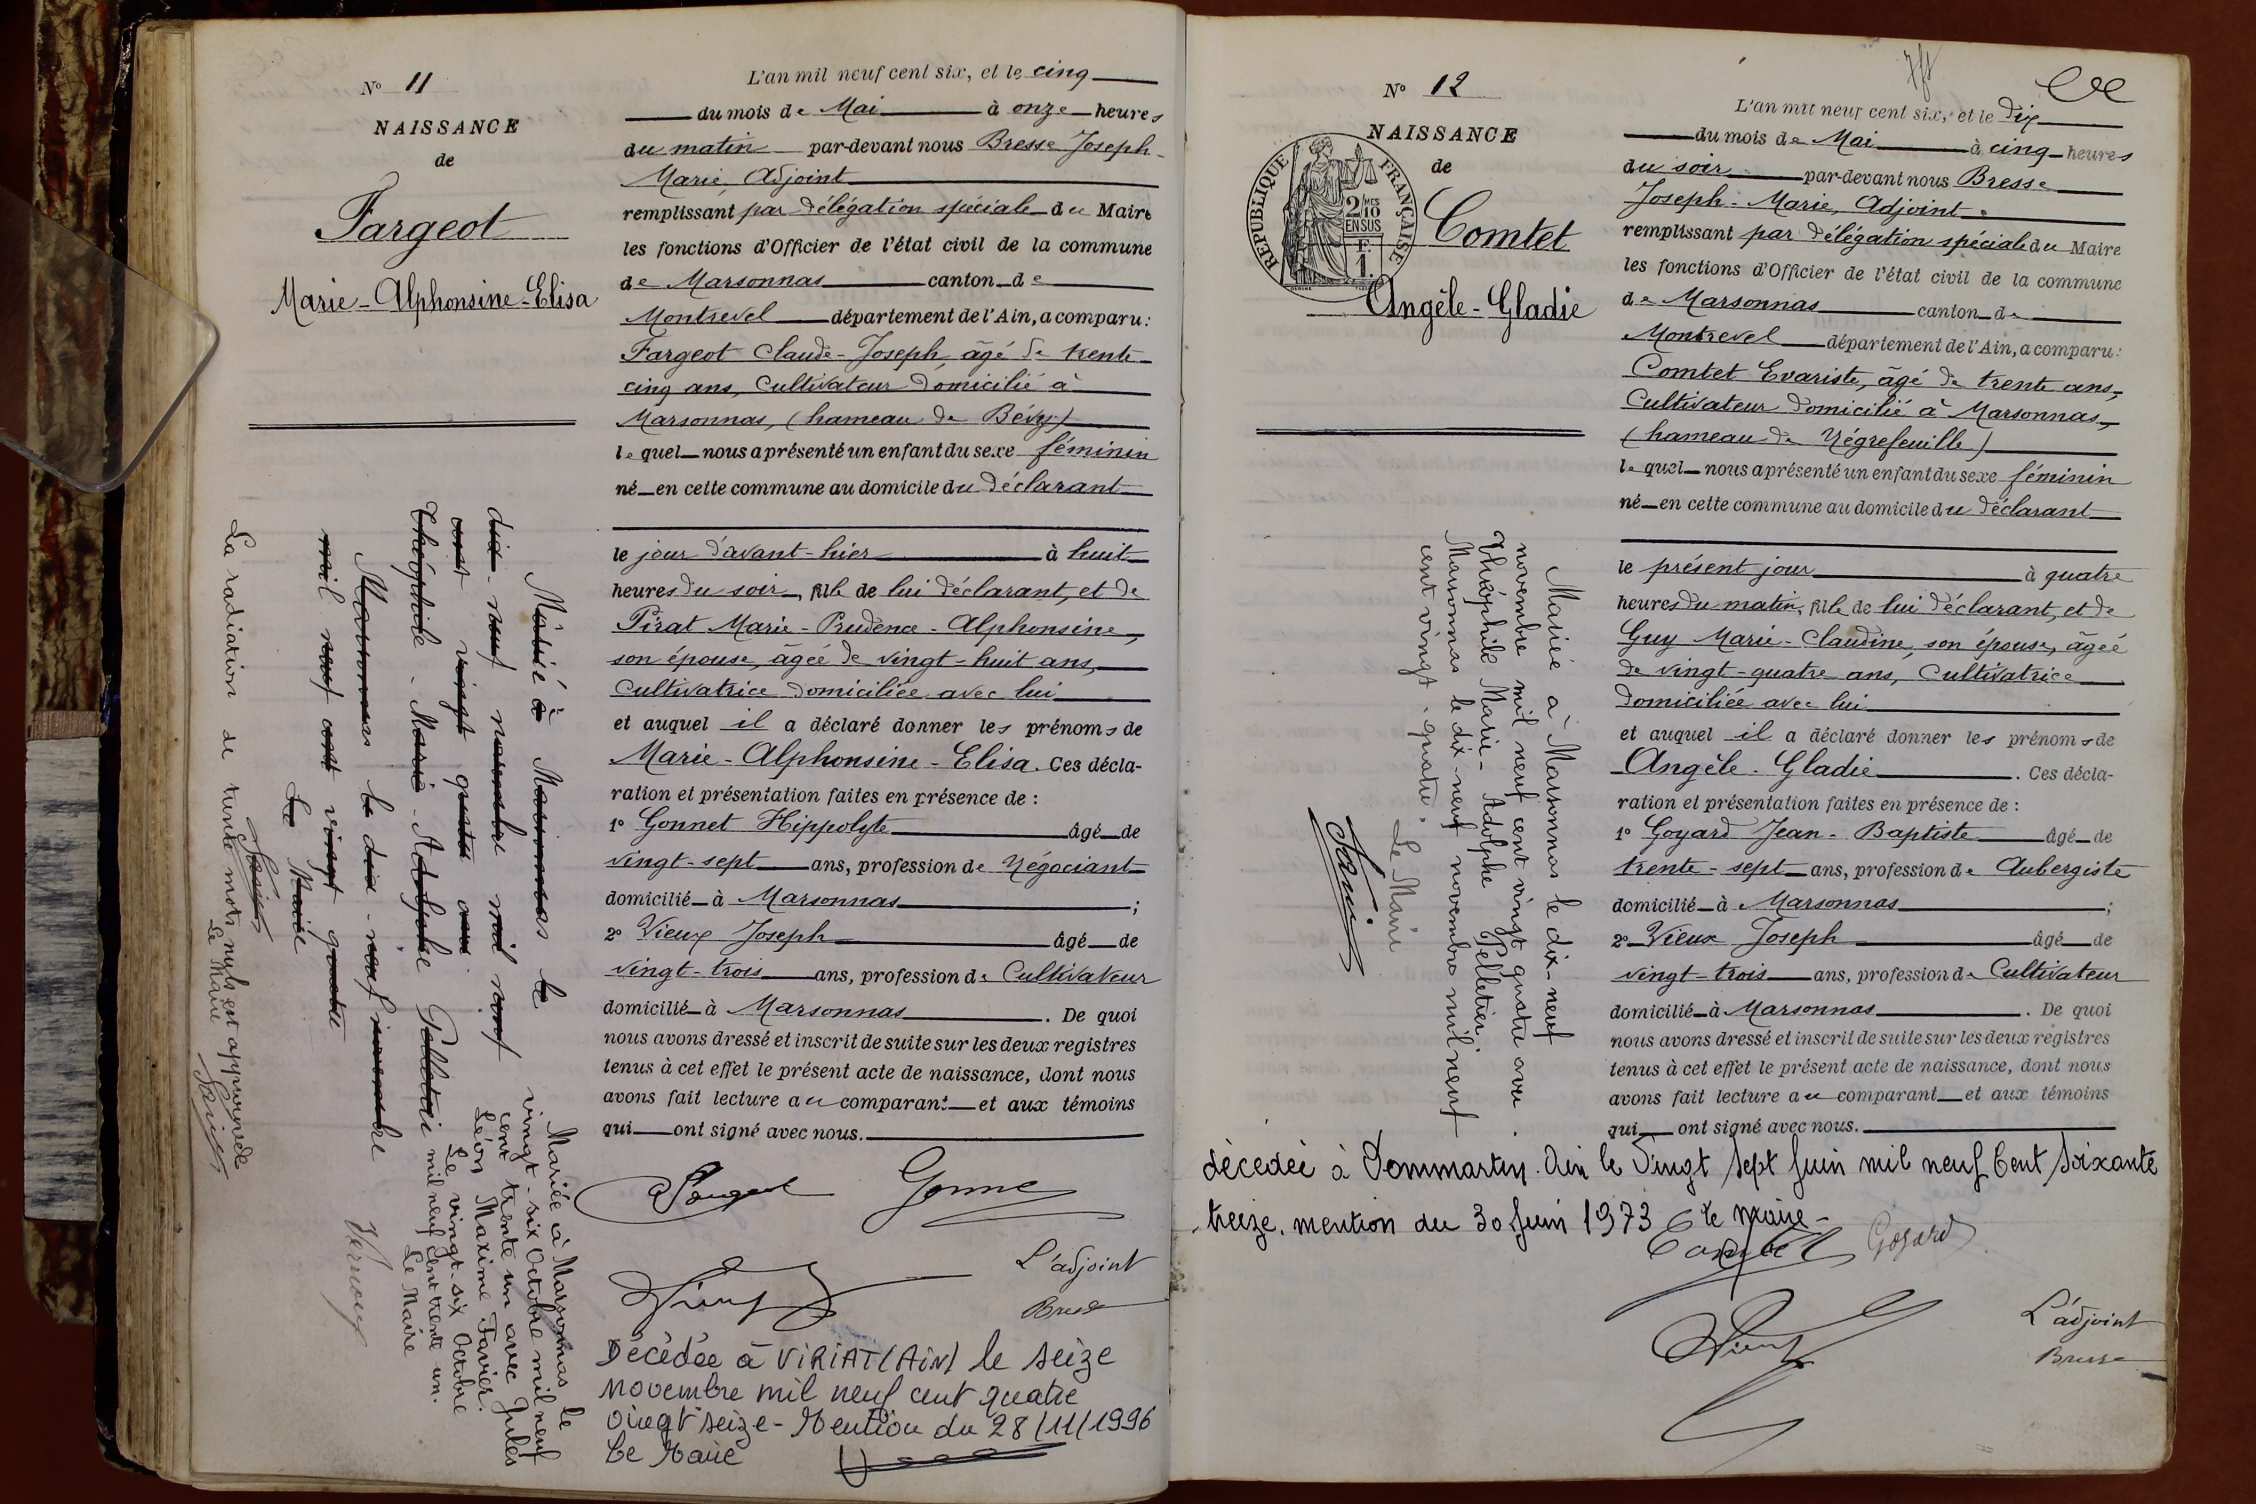 N° 11
NAISSANCE
de
Fargeot
Marie-Alphonsine-Elisa
L'an mil neuf cent six, et le cinq
du mois de Mai à onze heures
du matin par-devant nous Bresse Joseph-
Marie, Adjoint
remplissant par délégation spéciale du Maire
les fonctions d'Officier de l'état civil de la commune
de Marsonnas canton de
Montrevel département de l'Ain, a comparu:
Fargeot Claude-Joseph, âgé de trente-
cinq ans, Cultivateur domicilié à
Marsonnas, (hameau de Bévy)
lequel nous a présenté un enfant du sexe féminin
né en cette commune au domicile du déclarant
le jour d'avant-hier à huit
heures du soir, fille de lui déclarant, et de
Pirat Marie-Prudence-Alphonsine,
son épouse, âgée de vingt-huit ans,
Cultivatrice domiciliée avec lui
et auquel il a déclaré donner les prénoms de
Marie-Alphonsine-Elisa. Ces décla-
ration et présentation faites en présence de :
1° Gonnet Hippolyte âgé de
vingt-sept ans, profession de Négociant
domicilié à Marsonnas ;
2° Vieux Joseph âgé de
vingt-trois ans, profession de Cultivateur
domicilié à Marsonnas. De quoi
nous avons dressé et inscrit de suite sur les deux registres
tenus à cet effet le présent acte de naissance, dont nous
avons fait lecture au comparant et aux témoins
qui ont signé avec nous.
L'adjoint
Bresse
Décédée à VIRIAT (AIN) le seize
Novembre mil neuf cent quatre
vingt seize - Mention du 28/11/1996
Le Maire
Mariée à Marsonnas le
dix-neuf novembre mil neuf
cent vingt quatre avec
Théophile-Marie-Adolphe Pelletier
Marsonnas le dix-neuf novembre
mil neuf cent vingt quatre
Le Maire
La radiation de trente mots nuls est approuvée
Le Maire
Mariée à Marsonnas le
vingt-six Octobre mil neuf
cent trente un avec Jules
Léon Maxime Favier.
Le vingt-six Octobre
mil neuf cent trente un.
Le Maire
N° 12
NAISSANCE
de
Comtet
Angèle-Gladie
RÉPUBLIQUE FRANÇAISE
2/10 MES
EN SUS
F.
1.
L'an mil neuf cent six, et le dix
du mois de Mai à cinq heures
du soir par-devant nous Bresse
Joseph-Marie, Adjoint
remplissant par délégation spéciale du Maire
les fonctions d'Officier de l'état civil de la commune
de Marsonnas canton de
Montrevel département de l'Ain, a comparu:
Comtet Evariste, âgé de trente ans,
Cultivateur domicilié à Marsonnas,
(hameau de Négrefeuille)
lequel nous a présenté un enfant du sexe féminin
né en cette commune au domicile du déclarant
le présent jour à quatre
heures du matin, fille de lui déclarant, et de
Guy Marie-Claudine, son épouse, âgée
de vingt-quatre ans, Cultivatrice
domiciliée avec lui
et auquel il a déclaré donner les prénoms de
Angèle-Gladie. Ces décla-
ration et présentation faites en présence de :
1° Goyard Jean-Baptiste âgé de
trente-sept ans, profession de Aubergiste
domicilié à Marsonnas ;
2° Vieux Joseph âgé de
vingt-trois ans, profession de Cultivateur
domicilié à Marsonnas. De quoi
nous avons dressé et inscrit de suite sur les deux registres
tenus à cet effet le présent acte de naissance, dont nous
avons fait lecture au comparant et aux témoins
qui ont signé avec nous.
décédée à Dommartin. Ain le Vingt Sept Juin mil neuf Cent Soixante
treize. mention du 30 Juin 1973 le maire
Goyard
L'adjoint
Bresse
Mariée à Marsonnas le dix-neuf
novembre mil neuf cent vingt quatre avec
Théophile Marie-Adolphe Pelletier.
Marsonnas le dix-neuf novembre mil neuf
cent vingt-quatre.
Le Maire